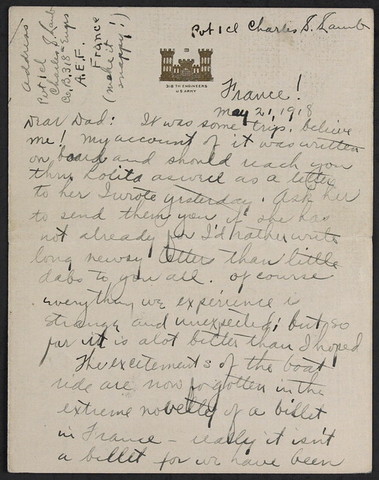 Pvt 1cl Charles S. Lamb
Address
Pvt 1cl
Charles S. Lamb
Co. B. 318th Engrs
A.E.F.
France
(make it
snappy!)
318TH ENGINEERS
U.S. ARMY
France!
May 21, 1918
Dear Dad: It was some trip, believe
me! My account of it was written
on board and should reach you
thru Lolita as will as a letter
to her I wrote yesterday. Ask her
to send them you if she has
not already for I'd rather write
long newsy letter than little
dabs to you all. Of course
everything we experience is
strange and unexpected; but so
far it is alot better than I hoped
The excitements of the boat
ride are now forgotten in the
extreme novelty of a billet
in France – really it isn't
a billet for we have been